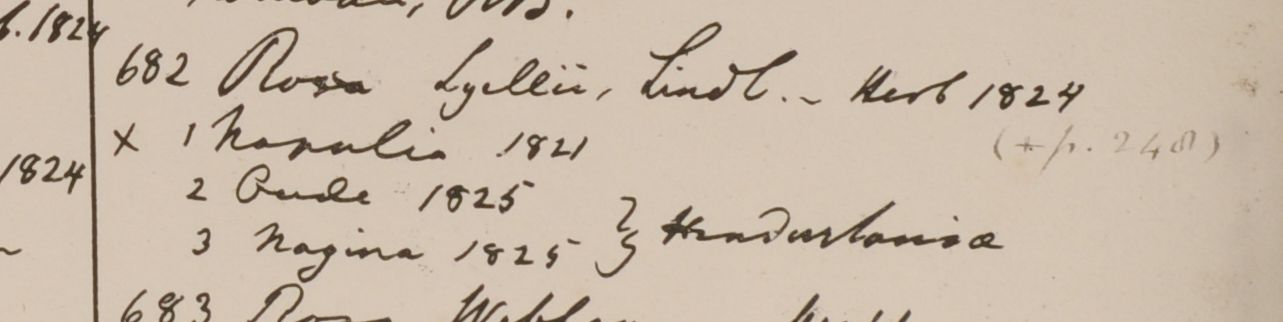 b. 1824
682 Rosa Lyellii, Lindl. - Herb 1824
x 1 Napalia 1821 (+ p. 248)
1824
2 Oude 1825
3 Nagina 1825 } Hindustaniae
683 Rosa Webb